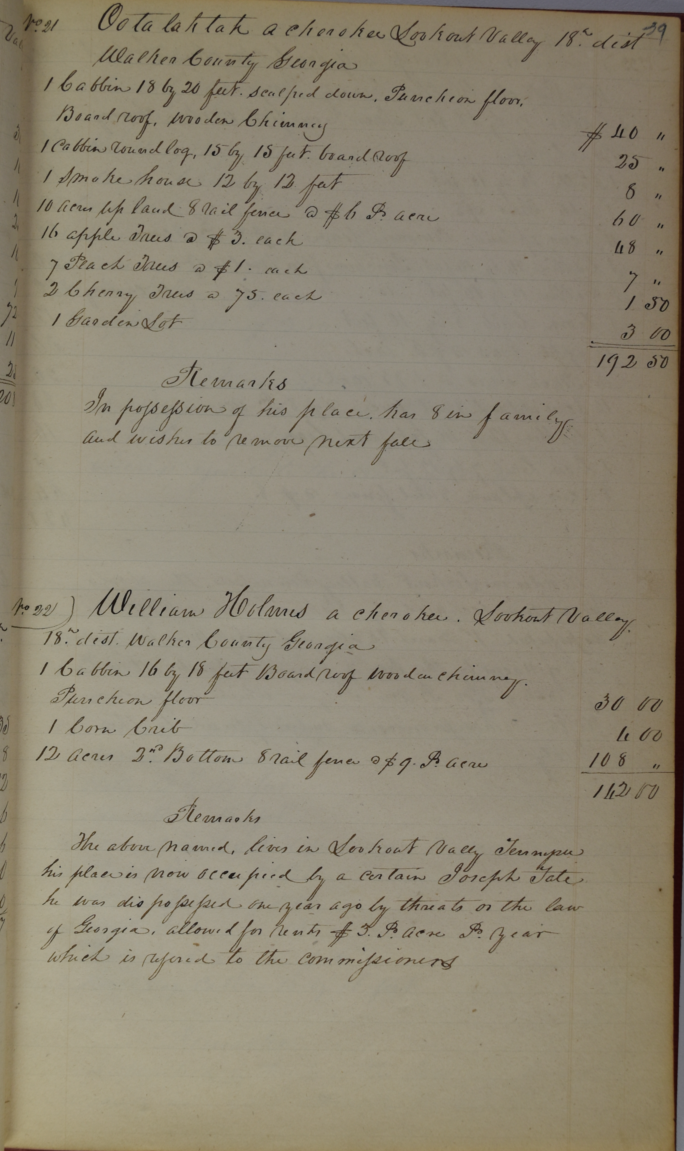 29
No 21 Oota lah tah a cherokee Lookout Valley 18th dist
Walker County Georgia
1 Cabbin 18 by 20 feet. scalped down. Puncheon floor,
Board roof, wooden Chimney $40 "
1 cabbin round log, 15 by 15 feet board roof 25 "
1 Smoke house 12 by 12 feet 8 "
10 acres up land 8 rail fence @ $6 Pr acre 60 "
16 apple Trees @ $3. each 48 "
7 Peach Trees @ $1. each 7 "
2 Cherry Trees @ 75. each 1 50
1 Garden Lot 3 00
192 50
Remarks
In possession of his place. has 8 in family
and wishes to remove next fall
No 22) William Holmes a cherokee. Lookout Valley.
18th dist. Walker County Georgia
1 Cabbin 16 by 18 feet Board roof wooden chimney.
Puncheon floor 30 00
1 Corn Crib 4 00
12 acres 2nd Bottom 8 rail fence @ $9. Pr acre 108 "
142 00
Remarks
The above named, lives in Lookout Vally Tennessee
his place is now occupied by a certain Joseph Tate
he was dispossessed one year ago by threats or the law
of Georgia, allowed for rents $3. Pr acre Pr year
which is refered to the commissioners